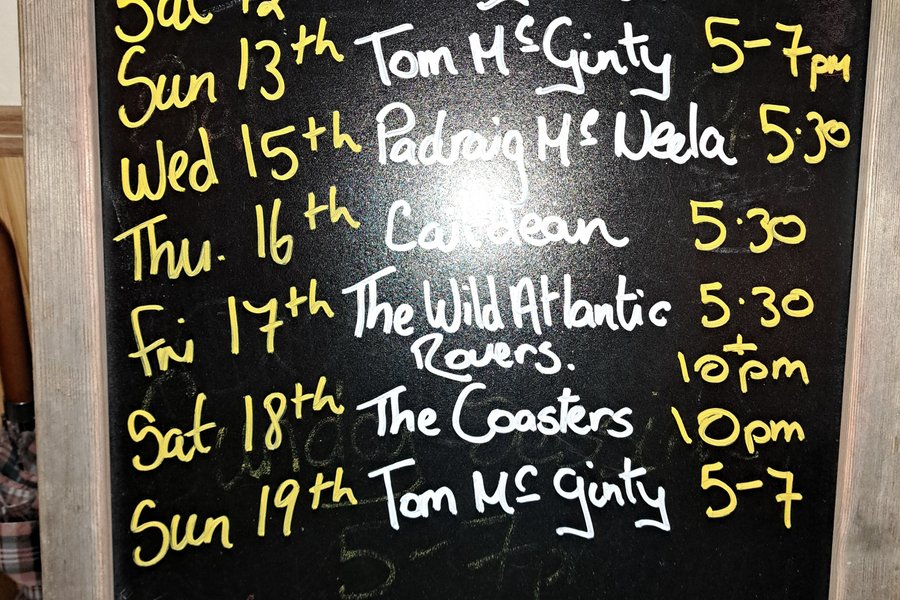 Sat 12
Sun 13th Tom Mc Ginty 5-7pm
Wed 15th Padraig Mc Neela 5.30
Thu. 16th 5.30
Fri 17th The Wild Atlantic 5.30
Rovers. + 10pm
Sat 18th The Coasters 10pm
Sun 19th Tom Mc Ginty 5-7
5-7p